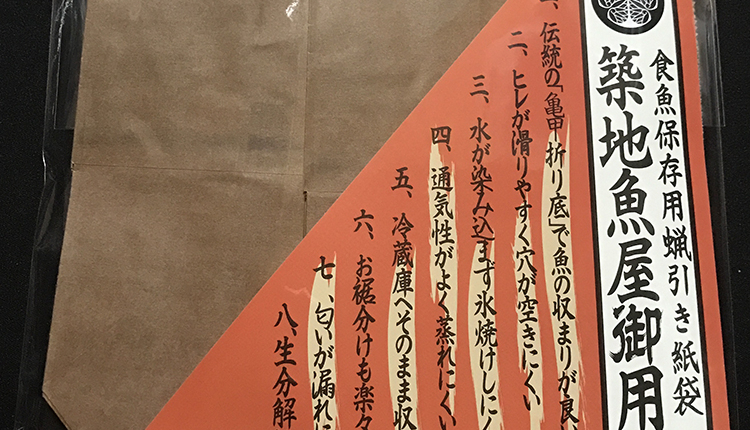 食魚保存用蝋引き紙袋
築地魚屋御用
一、伝統の「亀甲折り底」で魚の収まりが良い
二、ヒレが滑りやすく穴が空きにくい
三、水が染み込まず氷焼けしにく
四、通気性がよく蒸れにくい
五、冷蔵庫へそのまま収
六、お裾分けも楽々
七、匂いが漏れに
八、生分解